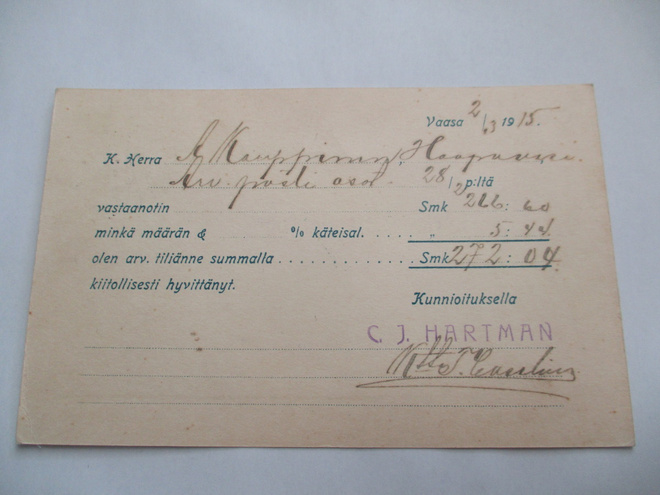 Vaasa 2/3 1915.
K. Herra A. Kauppinen, Haapavesi.
Arv. posti os. 28/2 p:ltä
vastaanotin Smk 266: 60
minkä määrän & % käteisal. . . . . „ 5: 44
olen arv. tiliänne summalla . . . . . . . . . . . . Smk 272: 04.
kiitollisesti hyvittänyt.
Kunnioituksella
C. J. HARTMAN